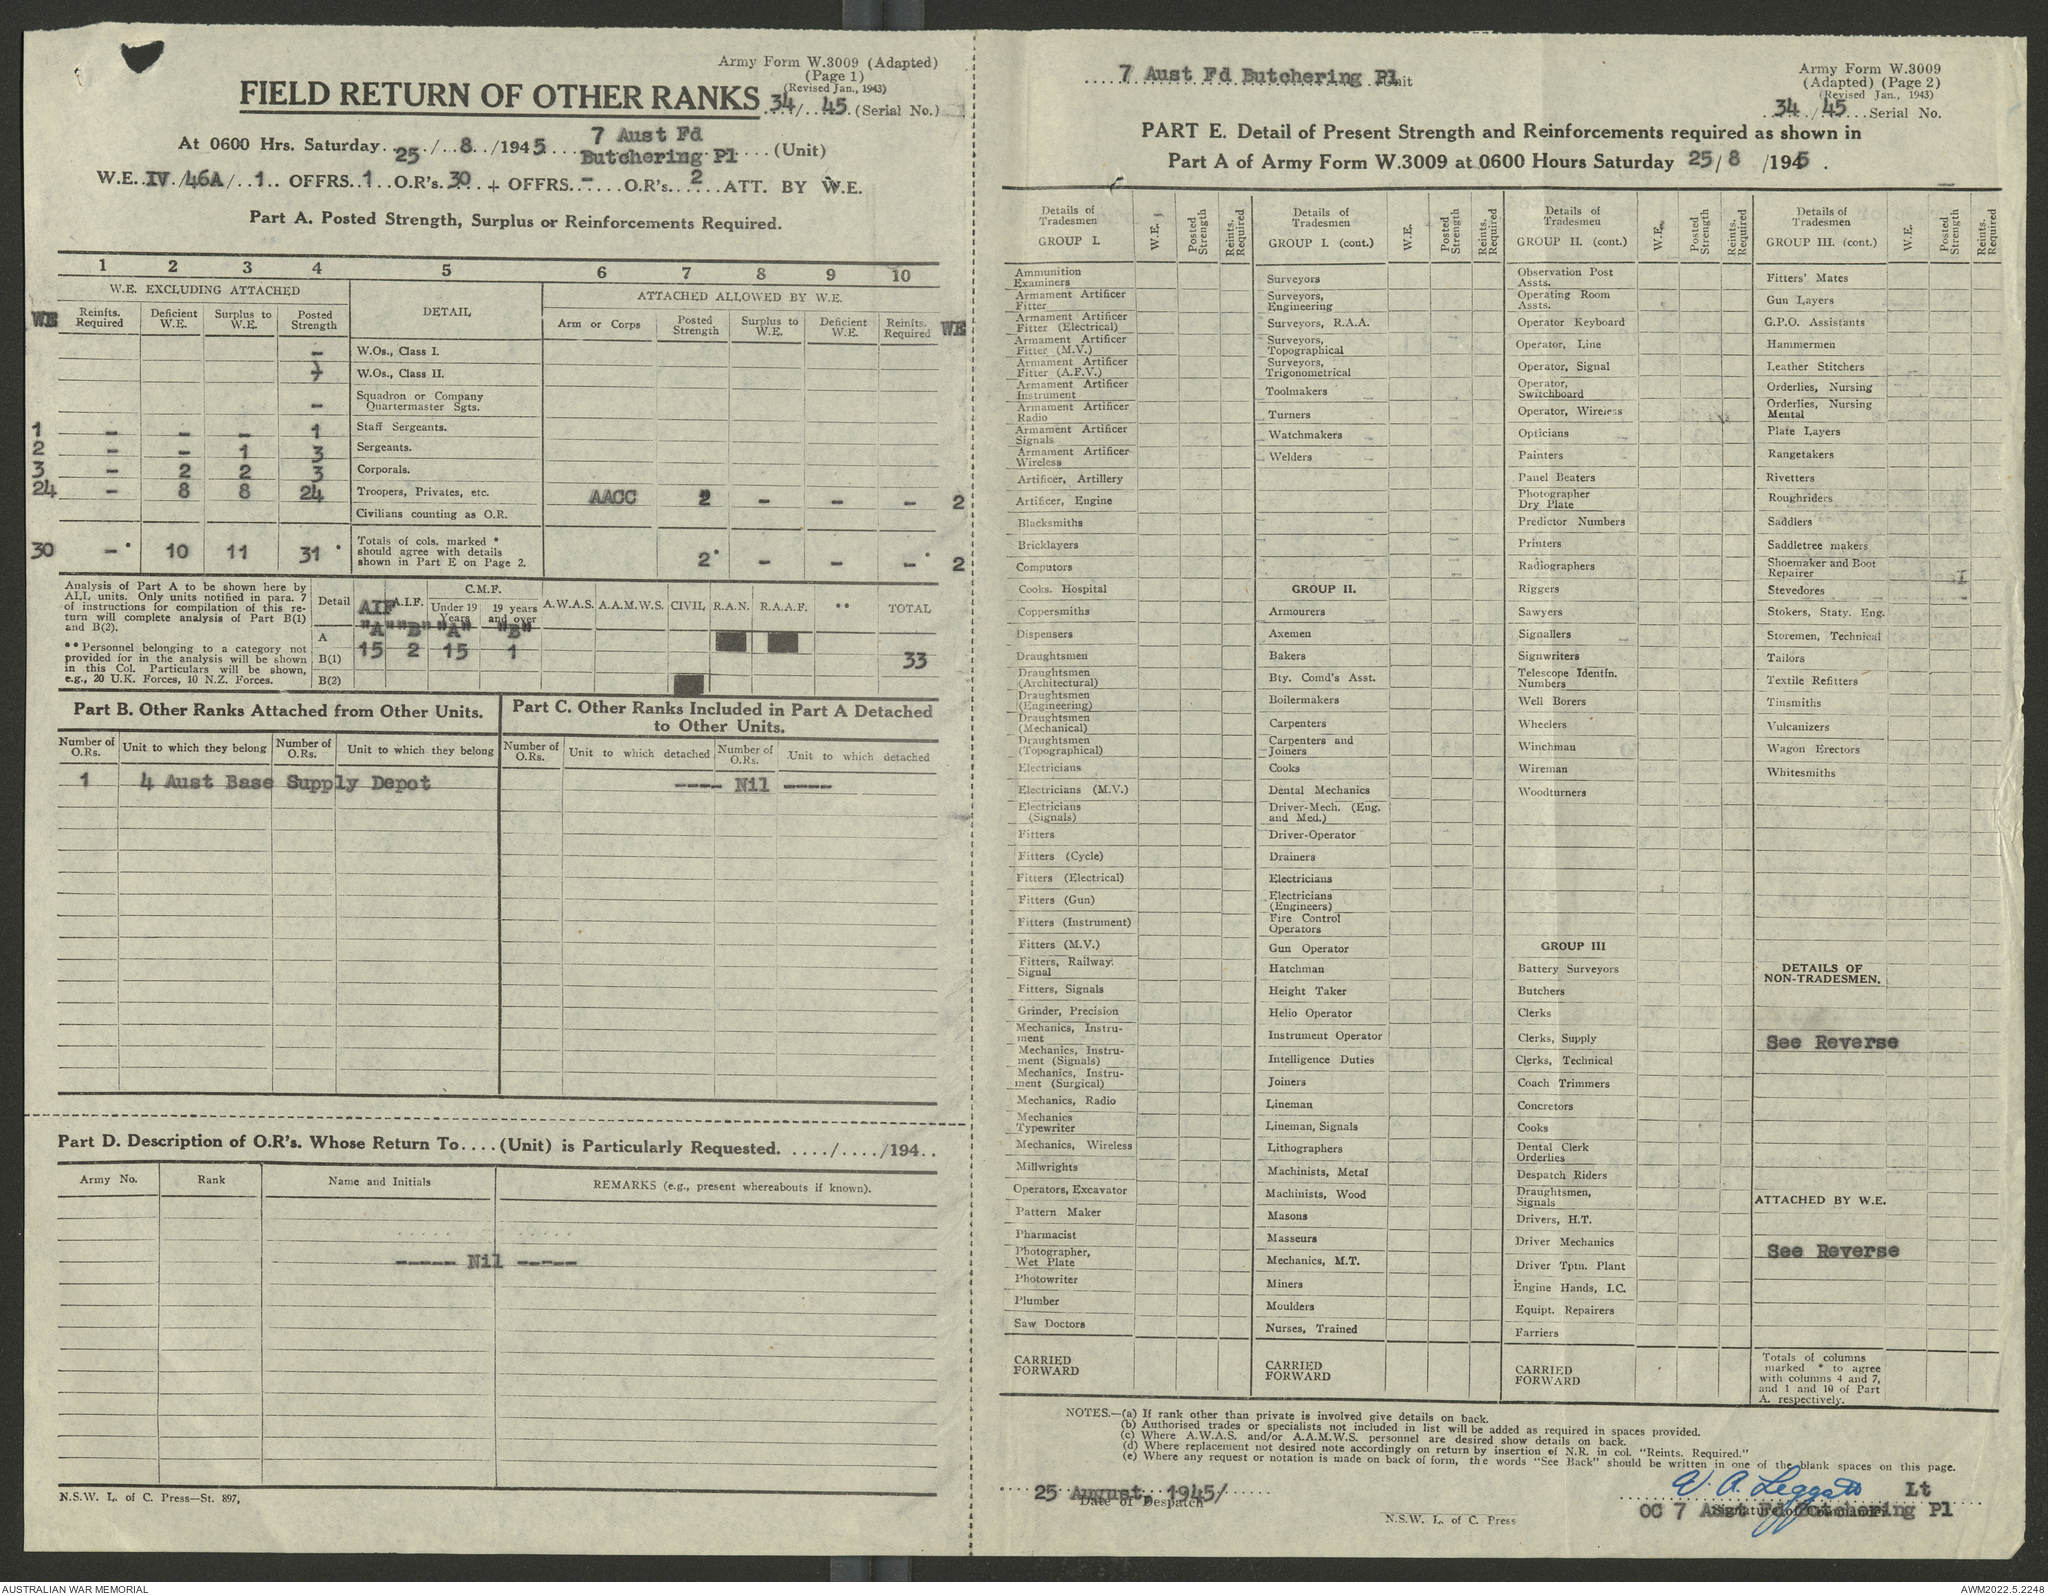 Army Form W.3009 (Adapted)
(Page 1)
(Revised Jan., 1943)
FIELD RETURN OF OTHER RANKS 34/ 45 (Serial No.)
At 0600 Hrs. Saturday 25 / 8 /1945 7 Aust Fd
Butchering Pl (Unit)
W.E. IV /46A/ 1 OFFRS 1 O.R's. 30 + OFFRS - O.R's. 2 ATT. BY W.E.
Part A. Posted Strength, Surplus or Reinforcements Required.
1 2 3 4 5 6 7 8 9 10
W.E. EXCLUDING ATTACHED DETAIL ATTACHED ALLOWED BY W.E.
WE Reinfts. Required Deficient W.E. Surplus to W.E. Posted Strength Arm or Corps Posted Strength Surplus to W.E. Deficient W.E. Reinfts. Required WE
- W.Os., Class I.
W.Os., Class II.
- Squadron or Company Quartermaster Sgts.
1 - - - 1 Staff Sergeants.
2 - - 1 3 Sergeants.
3 - 2 2 3 Corporals.
24 - 8 8 24 Troopers, Privates, etc. AACC 2 - - - 2
Civilians counting as O.R.
30 -* 10 11 31* Totals of cols. marked * should agree with details shown in Part E on Page 2. 2* - - -* 2
Analysis of Part A to be shown here by
ALL units. Only units notified in para. 7
of instructions for compilation of this re-
turn will complete analysis of Part B(1)
and B(2).
** Personnel belonging to a category not
provided for in the analysis will be shown
in this Col. Particulars will be shown,
e.g., 20 U.K. Forces, 10 N.Z. Forces.
Detail AIF A.I.F. C.M.F. Under 19 Years 19 years and over A.W.A.S. A.A.M.W.S. CIVIL R.A.N. R.A.A.F. ** TOTAL
"A" "B" "A" "B"
A
B(1) 15 2 15 1 33
B(2)
Part B. Other Ranks Attached from Other Units.
Number of O.Rs. Unit to which they belong Number of O.Rs. Unit to which they belong
1 4 Aust Base Supply Depot
Part C. Other Ranks Included in Part A Detached
to Other Units.
Number of O.Rs. Unit to which detached Number of O.Rs. Unit to which detached
---- Nil ----
Part D. Description of O.R's. Whose Return To....(Unit) is Particularly Requested. ..../..../194..
Army No. Rank Name and Initials REMARKS (e.g., present whereabouts if known).
----- Nil -----
N.S.W. L. of C. Press—St. 897,
7 Aust Fd Butchering Pl Unit
Army Form W.3009
(Adapted) (Page 2)
(Revised Jan., 1943)
34 /45 Serial No.
PART E. Detail of Present Strength and Reinforcements required as shown in
Part A of Army Form W.3009 at 0600 Hours Saturday 25/ 8 /1945 .
Details of Tradesmen GROUP I. W.E. Posted Strength Reints. Required
Ammunition Examiners
Armament Artificer Fitter
Armament Artificer Fitter (Electrical)
Armament Artificer Fitter (M.V.)
Armament Artificer Fitter (A.F.V.)
Armament Artificer Instrument
Armament Artificer Radio
Armament Artificer Signals
Armament Artificer Wireless
Artificer, Artillery
Artificer, Engine
Blacksmiths
Bricklayers
Computors
Cooks. Hospital
Coppersmiths
Dispensers
Draughtsmen
Draughtsmen (Architectural)
Draughtsmen (Engineering)
Draughtsmen (Mechanical)
Draughtsmen (Topographical)
Electricians
Electricians (M.V.)
Electricians (Signals)
Fitters
Fitters (Cycle)
Fitters (Electrical)
Fitters (Gun)
Fitters (Instrument)
Fitters (M.V.)
Fitters, Railway. Signal
Fitters, Signals
Grinder, Precision
Mechanics, Instru-
ment
Mechanics, Instru-
ment (Signals)
Mechanics, Instru-
ment (Surgical)
Mechanics, Radio
Mechanics Typewriter
Mechanics, Wireless
Millwrights
Operators, Excavator
Pattern Maker
Pharmacist
Photographer, Wet Plate
Photowriter
Plumber
Saw Doctors
CARRIED FORWARD
Details of Tradesmen GROUP I. (cont.) W.E. Posted Strength Reints. Required
Surveyors
Surveyors, Engineering
Surveyors, R.A.A.
Surveyors, Topographical
Surveyors, Trigonometrical
Toolmakers
Turners
Watchmakers
Welders
GROUP II.
Armourers
Axemen
Bakers
Bty. Comd's Asst.
Boilermakers
Carpenters
Carpenters and Joiners
Cooks
Dental Mechanics
Driver-Mech. (Eng. and Med.)
Driver-Operator
Drainers
Electricians
Electricians (Engineers)
Fire Control Operators
Gun Operator
Hatchman
Height Taker
Helio Operator
Instrument Operator
Intelligence Duties
Joiners
Lineman
Lineman, Signals
Lithographers
Machinists, Metal
Machinists, Wood
Masons
Masseurs
Mechanics, M.T.
Miners
Moulders
Nurses, Trained
CARRIED FORWARD
Details of Tradesmen GROUP II. (cont.) W.E. Posted Strength Reints. Required
Observation Post Assts.
Operating Room Assts.
Operator Keyboard
Operator, Line
Operator, Signal
Operator, Switchboard
Operator, Wireless
Opticians
Painters
Panel Beaters
Photographer Dry Plate
Predictor Numbers
Printers
Radiographers
Riggers
Sawyers
Signallers
Signwriters
Telescope Identfn. Numbers
Well Borers
Wheelers
Winchman
Wireman
Woodturners
GROUP III
Battery Surveyors
Butchers
Clerks
Clerks, Supply
Clerks, Technical
Coach Trimmers
Concretors
Cooks
Dental Clerk Orderlies
Despatch Riders
Draughtsmen, Signals
Drivers, H.T.
Driver Mechanics
Driver Tptn. Plant
Engine Hands, I.C.
Equipt. Repairers
Farriers
CARRIED FORWARD
Details of Tradesmen GROUP III. (cont.) W.E. Posted Strength Reints. Required
Fitters' Mates
Gun Layers
G.P.O. Assistants
Hammermen
Leather Stitchers
Orderlies, Nursing
Orderlies, Nursing Mental
Plate Layers
Rangetakers
Rivetters
Roughriders
Saddlers
Saddletree makers
Shoemaker and Boot Repairer
Stevedores
Stokers, Staty. Eng.
Storemen, Technical
Tailors
Textile Refitters
Tinsmiths
Vulcanizers
Wagon Erectors
Whitesmiths
DETAILS OF NON-TRADESMEN.
See Reverse
ATTACHED BY W.E.
See Reverse
Totals of columns
marked * to agree
with columns 4 and 7,
and 1 and 10 of Part
A. respectively.
NOTES.—(a) If rank other than private is involved give details on back.
(b) Authorised trades or specialists not included in list will be added as required in spaces provided.
(c) Where A.W.A.S. and/or A.A.M.W.S. personnel are desired show details on back.
(d) Where replacement not desired note accordingly on return by insertion of N.R. in col. "Reints. Required."
(e) Where any request or notation is made on back of form, the words "See Back" should be written in one of the blank spaces on this page.
25 August, 1945/
Date of Despatch
W. A. Leggatt Lt
OC 7 Aust Fd Butchering Pl
Signature of Commander
N.S.W. L. of C. Press
AUSTRALIAN WAR MEMORIAL
AWM2022.5.2248